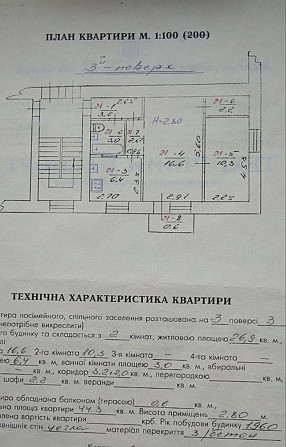 ПЛАН КВАРТИРИ М. 1:100 (200)
3й поверх
21-1
2.65
3.6
H=2.80
21-6
2.2
21-2
3.0
21-7
2.6
21-4
16.6
5.60
21-5
10.3
4.55
21-3
6.4
2.35
2.70
2.97
2.25
21-8
0.6
ТЕХНІЧНА ХАРАКТЕРИСТИКА КВАРТИРИ
тира посімейного, спільного заселення розташована на 3 поверсі 3
непотрібне викреслити)
го будинку та складається з 2 кімнат, житловою площею 26,9 кв. м.,
16,6 2-га кімната 10,3 3-я кімната — 4-та кімната —
6,4 кв. м, ванної кімнати 3,0 кв. м., вбиральні
— кв. м., коридор 3,2+2,6 кв. м., перегородкою
шафи 2,2 кв. м. веранди кв. м.
ира обладнана балконом (терасою) 0,6 кв. м.,
на площа квартири 44,3 кв. м. Висота приміщень 2,80 м.
вартість квартири — крб. Рік побудови будинку 1960
внішніх стін цегла матеріал перекриття З/бетон